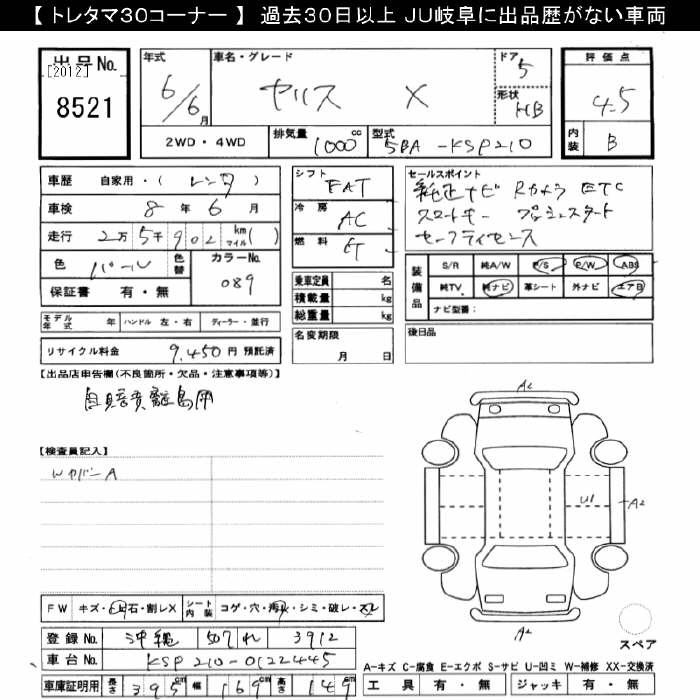 【 トレタマ30コーナー 】 過去30日以上 JU岐阜に出品歴がない車両
出品No.
[2012]
8521
年式
6/6月
車名・グレード
ヤリス X
ドア
5
形状
HB
評価点
4.5
内装
B
2WD・4WD
排気量
1000cc
型式
5BA-KSP210
車歴 自家用・( レンタ )
車検 8年 6月
走行 2万5千902 km マイル( )
色 パール 色替
カラーNo.
089
保証書 有・無
シフト
FAT
冷房
AC
燃料
乗車定員 名
積載量 kg
総重量 kg
セールスポイント
純正ナビ Rカメラ ETC
スマートキー プッシュスタート
セーフティセンス
装備品
S/R 純A/W P/S P/W ABS
純TV. 純ナビ 革シート 外ナビ エアB
ナビ型番:
モデル年式 年 ハンドル 左・右 ディーラー・並行
名変期限
月 日
後日品
リサイクル料金 9,450円 預託済
【出品店申告欄(不良箇所・欠品・注意事項等)】
自賠責離島用
【検査員記入】
Wカバー A
A2
U1
A2
A2
FW キズ・飛石・割レX
シート内装 コゲ・穴・汚れ・シミ・破レ・スレ
スペア
登録No. 沖縄 507 れ 3912
車台No. KSP210-0122445
A-キズ C-腐食 E-エクボ S-サビ U-凹ミ W-補修 XX-交換済
車庫証明用 長さ 395cm 幅 169cm 高さ 149cm
工具 有・無 ジャッキ 有・無